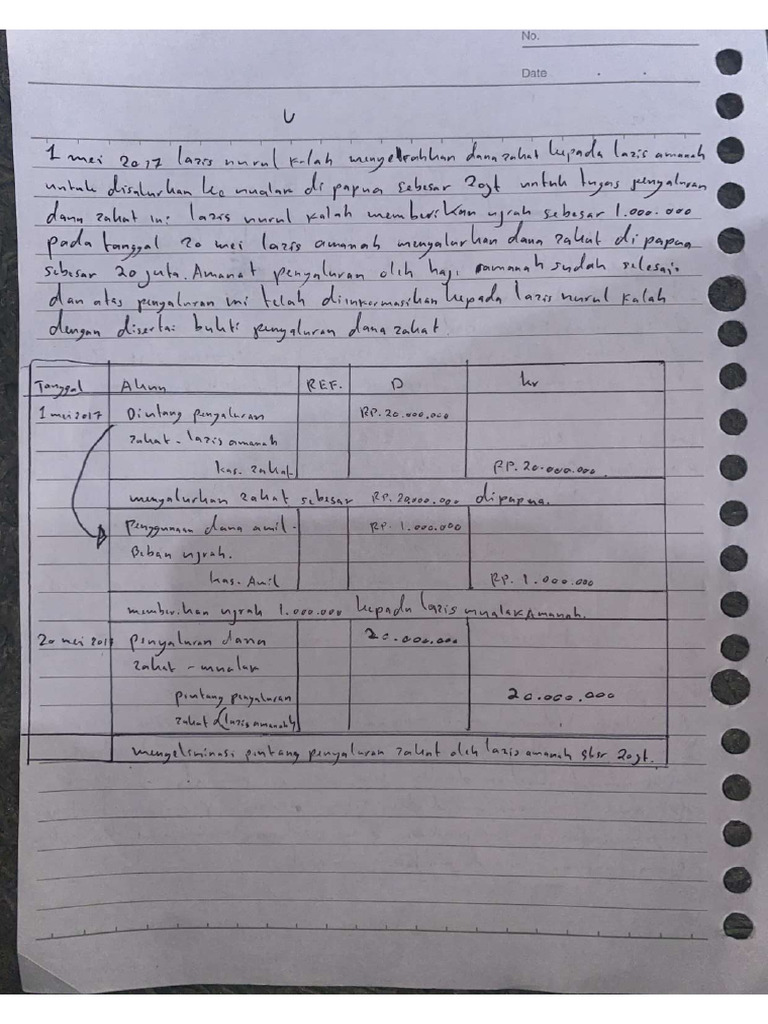 No.
Date
1 mei 2017 lazis nurul kalah menyerahkan dana zakat kepada lazis amanah
untuk disalurkan ke mualak di papua sebesar 20jt untuk tugas penyaluran
dana zakat ini lazis nurul kalah memberikan ujrah sebesar 1.000.000
pada tanggal 20 mei lazis amanah menyalurkan dana zakat di papua
sebesar 20 juta. Amanat penyaluran olih haji amanah sudah selesai.
dan atas penyaluran ini telah diinkormasikan kepada lazis nurul kalah
dengan disertai bukti penyaluran dana zakat.
Tanggal Akun REF. D kr
1 mei 2017 Piutang penyaluran RP. 20.000.000
zakat - lazis amanah
kas. zakat RP. 20.000.000
menyalurkan zakat sebesar RP. 20.000.000 dipapua.
penggunaan dana amil - RP. 1.000.000
Beban ujrah.
kas. Amil RP. 1.000.000
memberikan ujrah 1.000.000 kepada lazis mualak Amanah.
20 mei 2017 penyaluran dana 20.000.000
zakat - mualak
piutang penyaluran 20.000.000
zakat (lazis amanah)
mengeliminasi piutang penyaluran zakat olih lazis amanah sbsr 20jt.